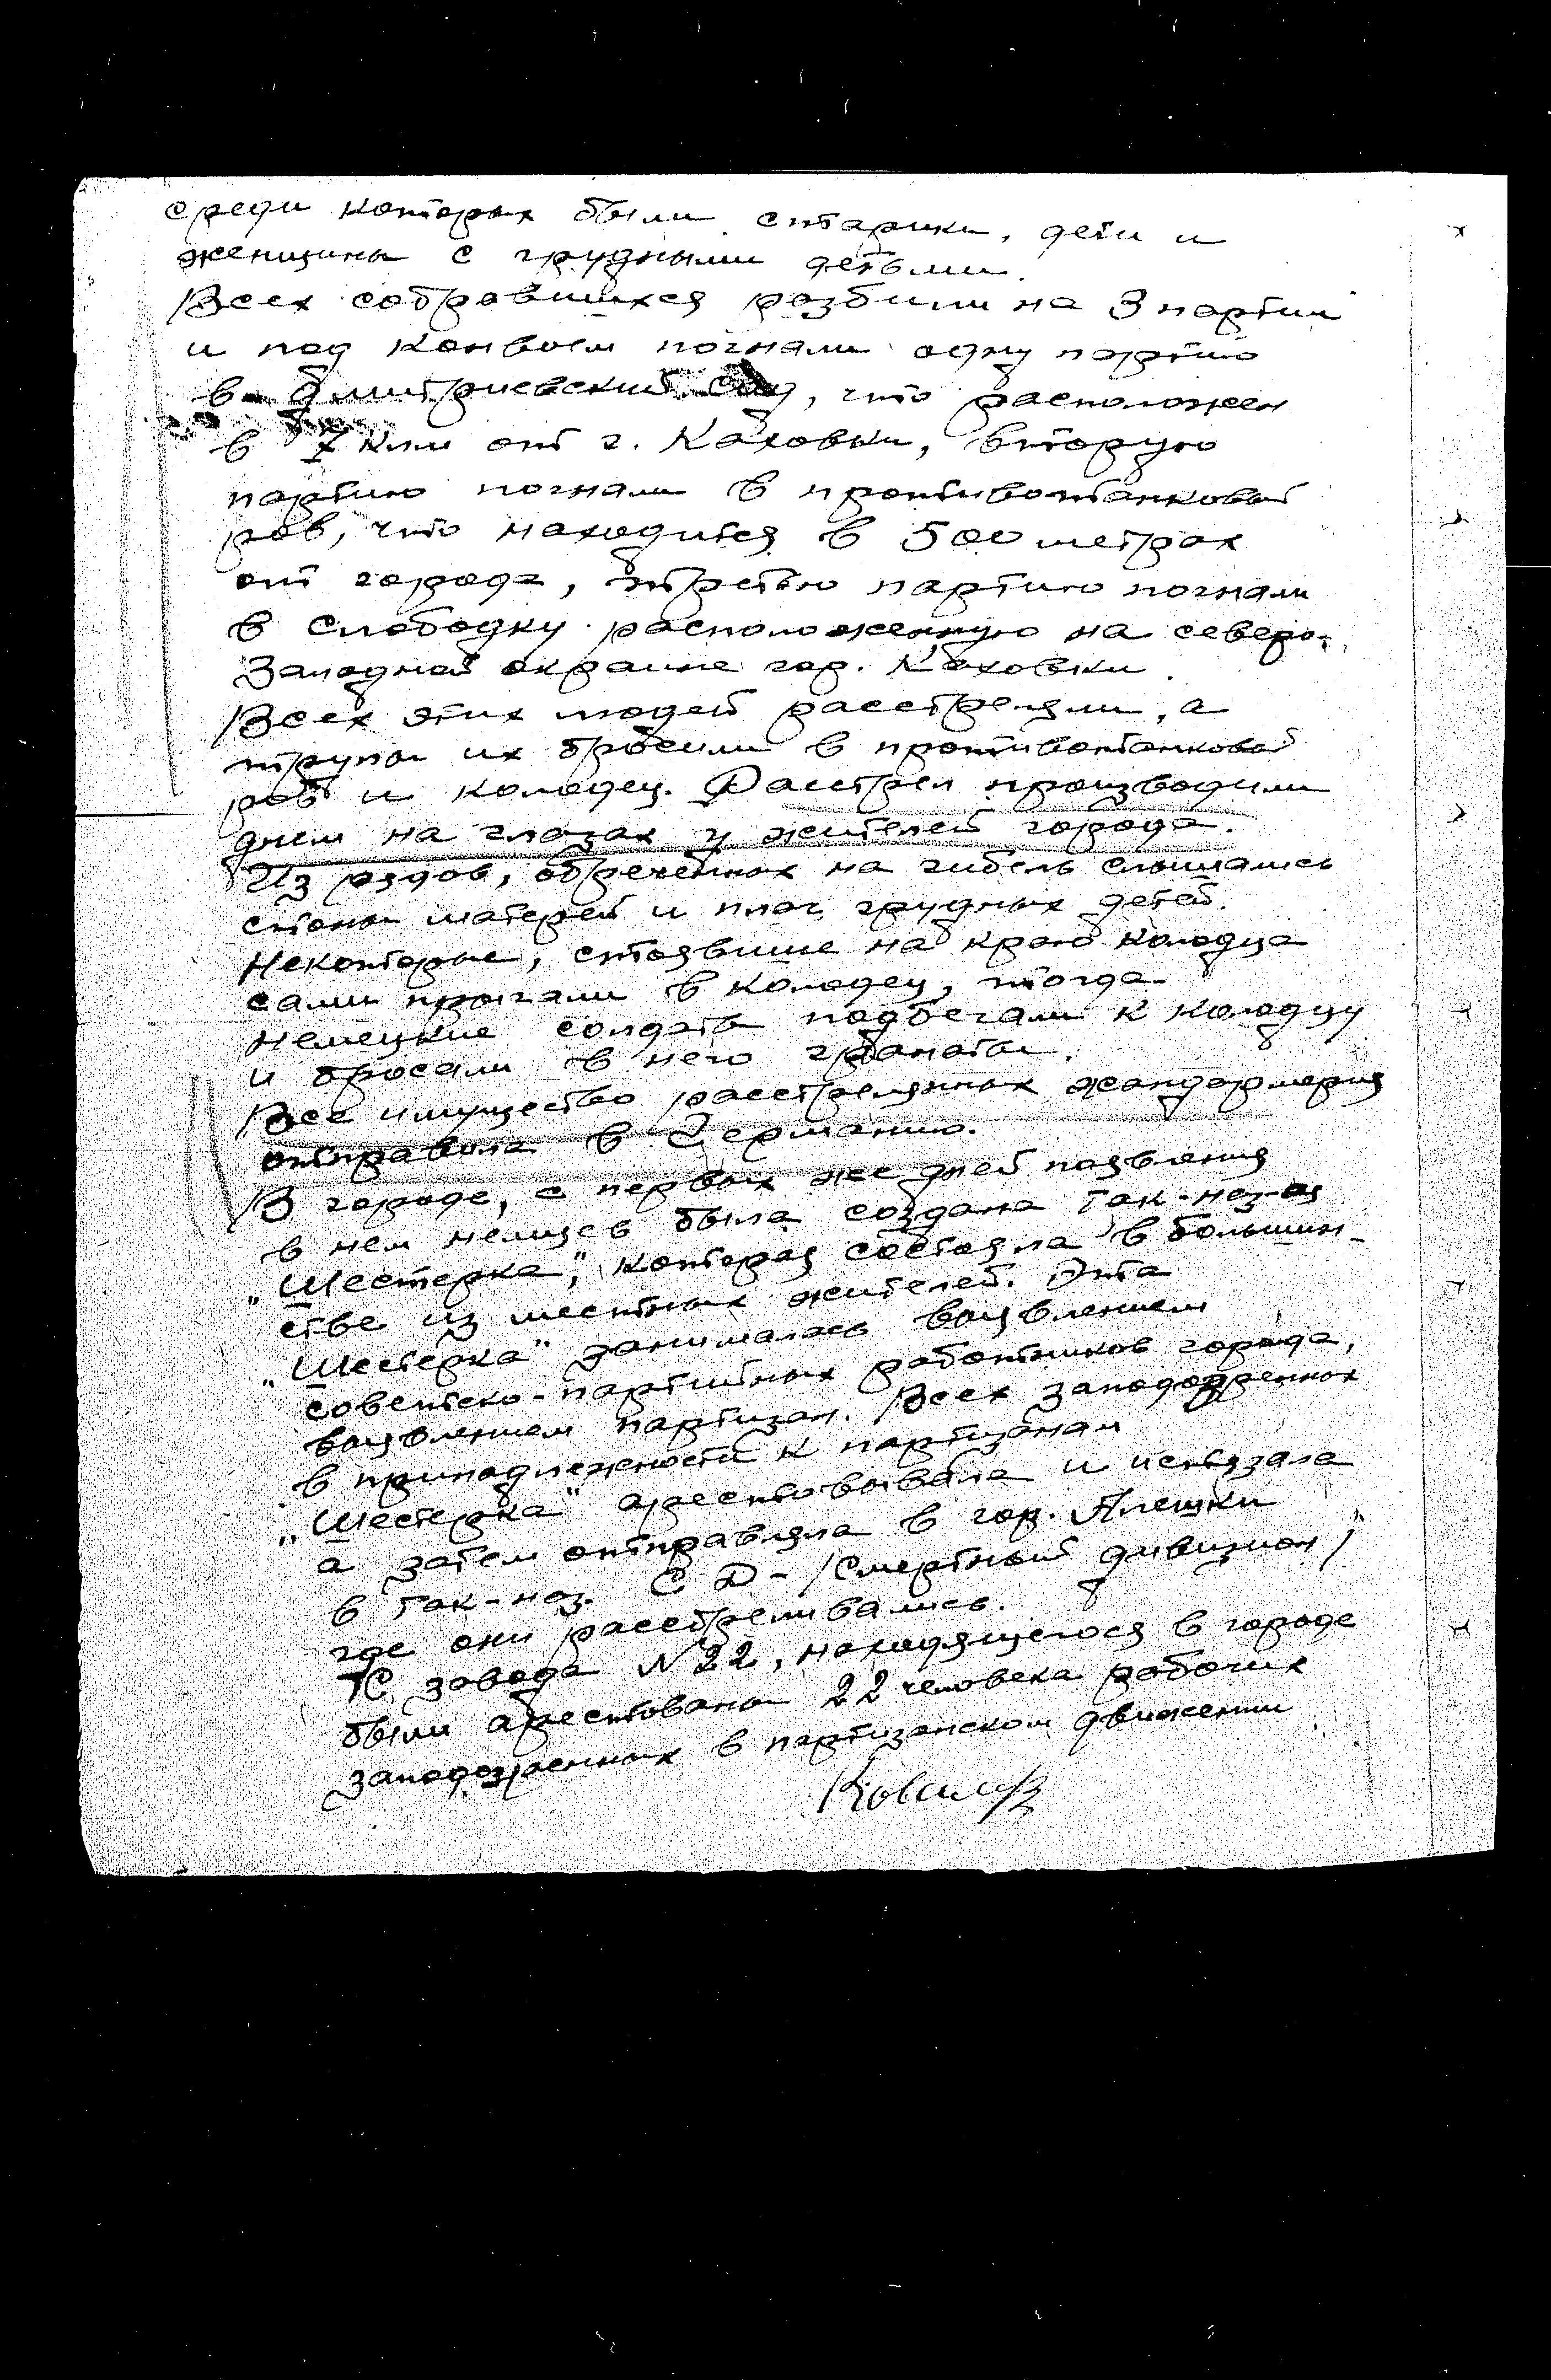 среди которых были старики, дети и
женщины с грудными детьми.
Всех собравшихся разбили на 3 партии
и под конвоем погнали одну партию
в Дмитриевский сад, что расположен
в 7 клм от г. Каховки, вторую
партию погнали в противотанковый
ров, что находится в 500 метрах
от города, третью партию погнали
в Слободку расположенную на северо-
Западной окраине гор. Каховки.
Всех этих людей расстреляли, а
трупы их бросили в противотанковый
ров и колодец. Расстрел производили
днем на глазах у жителей города.
Из рядов, обреченных на гибель слышались
стоны матерей и плач грудных детей.
Некоторые, стоявшие на краю колодца
сами прыгали в колодец, тогда
немецкие солдаты подбегали к колодцу
и бросали в него гранаты.
Все имущество расстрелянных жандармерия
отправила в Германию.
В городе, с первых же дней появления
в нем немцев была создана так-наз-ая
„Шестерка", которая состояла в большин-
стве из местных жителей. Эта
„Шестерка" занималась выявлением
советско-партийных работников города,
выявлением партизан. Всех заподозренных
в принадлежности к партизанам
„Шестерка" арестовывала и истязала
а затем отправляла в гор. Алешки
в так-наз. СД - /Смертный дивизион/
где они расстреливались.
С завода N 22, находящегося в городе
были арестованы 22 человека рабочих
заподозренных в партизанском движении